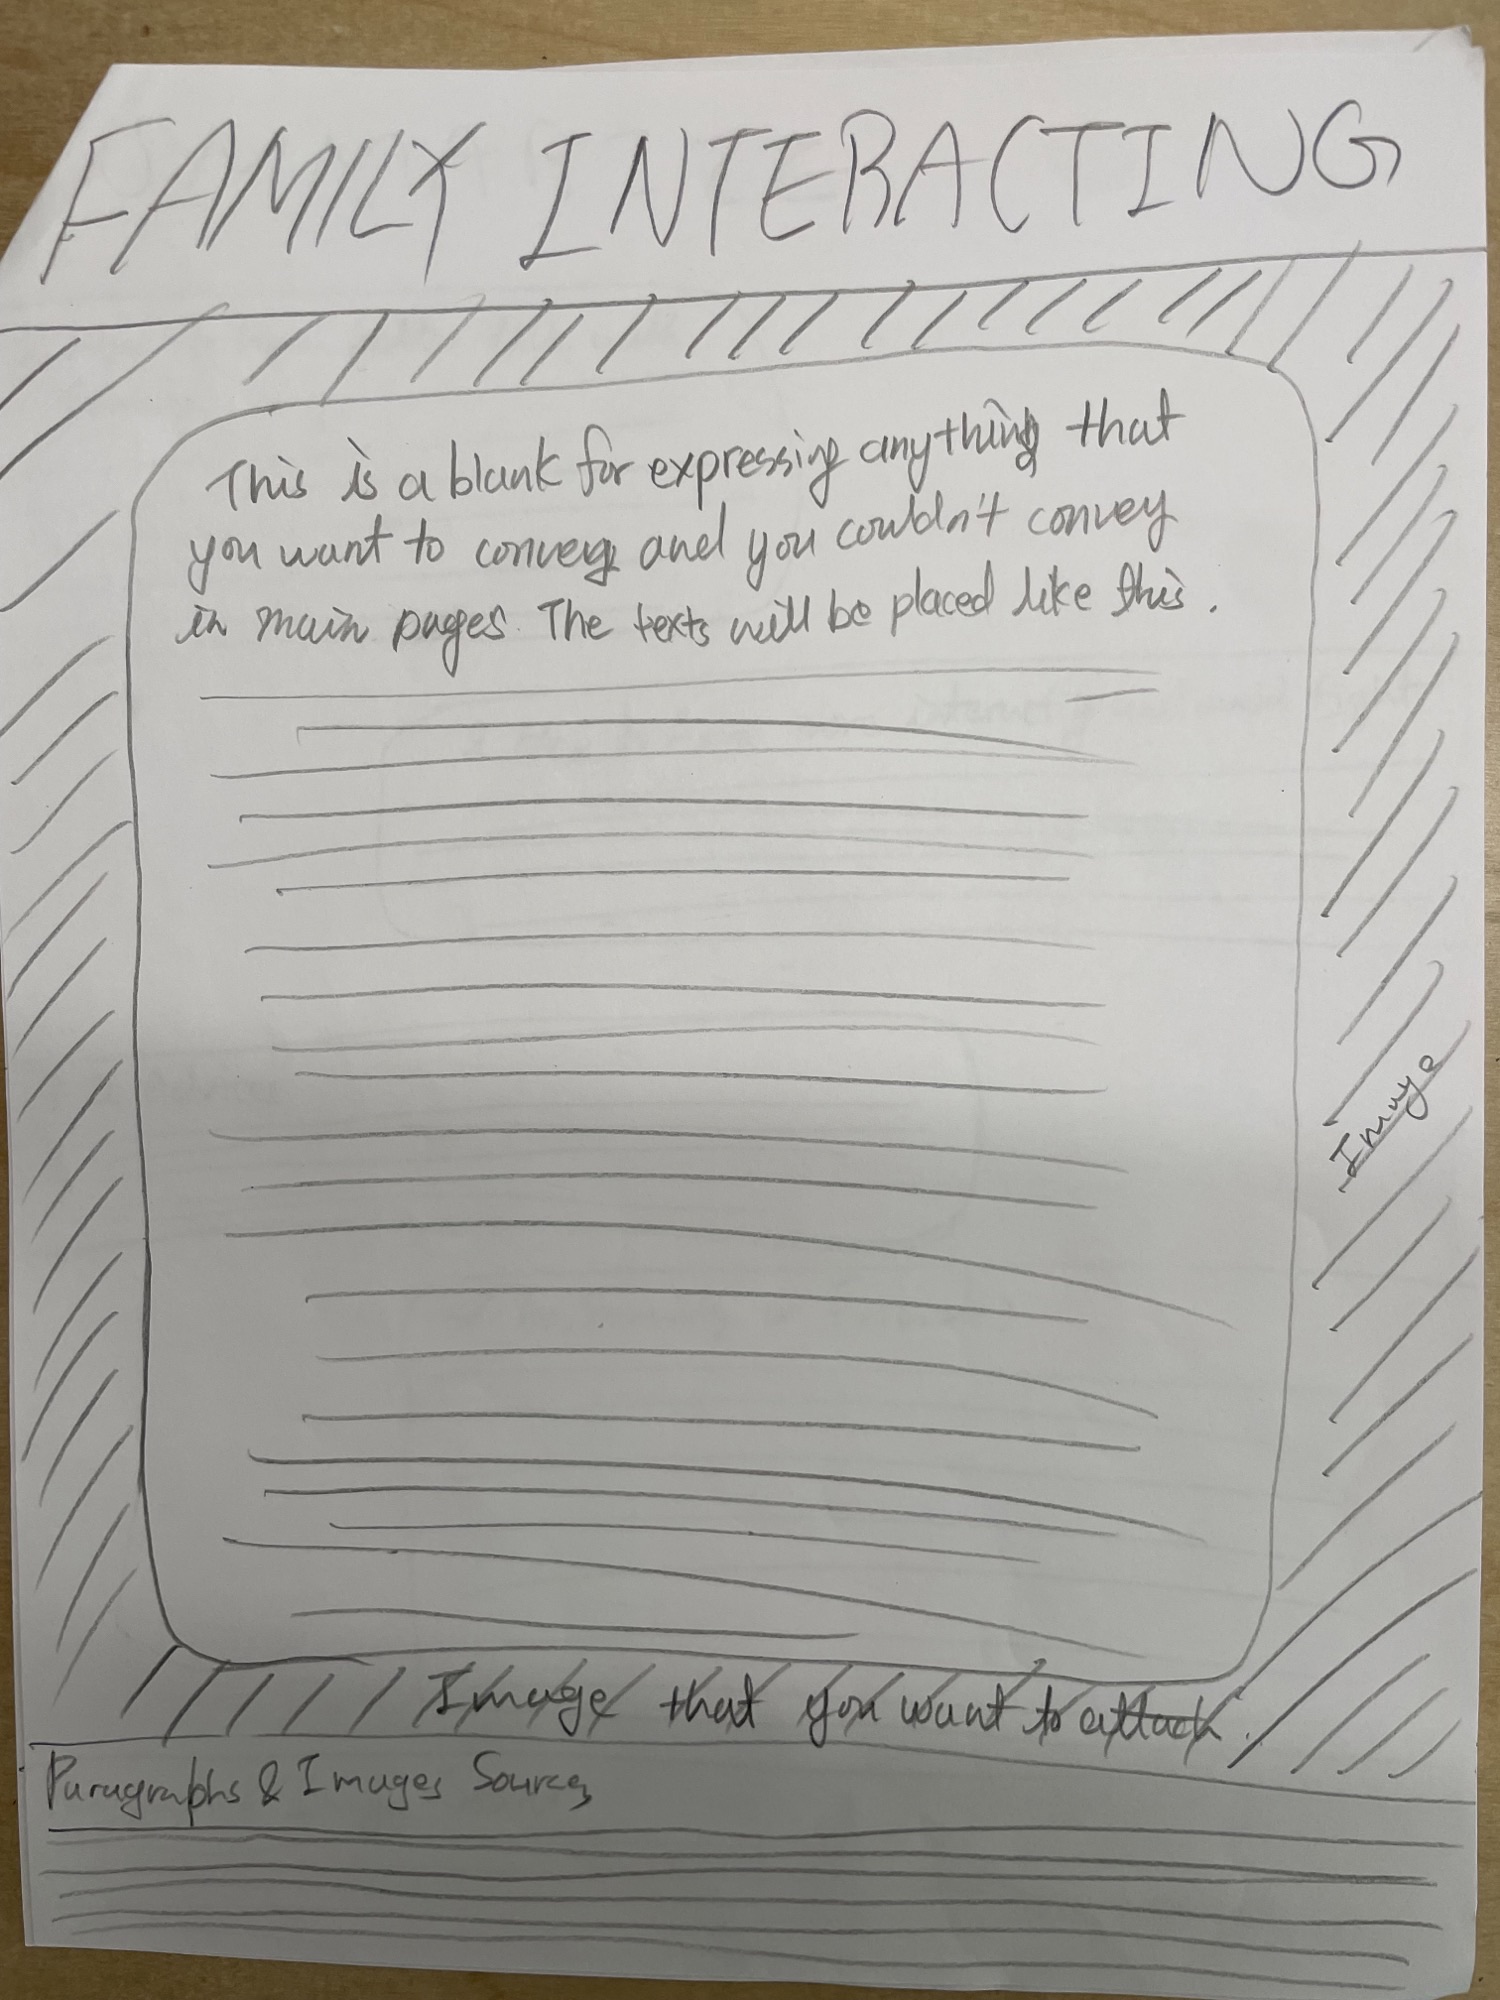 FAMILY INTERACTING
This is a blank for expressing anything that
you want to convey and you couldn't convey
in main pages. The texts will be placed like this.
Image
Image that you want to attach.
Paragraphs & Images Sources